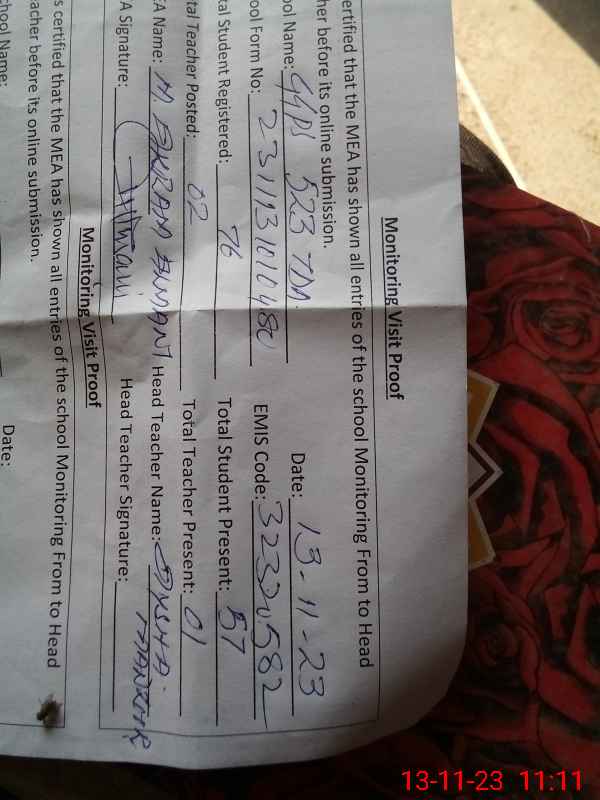 Monitoring Visit Proof
ertified that the MEA has shown all entries of the school Monitoring From to Head
her before its online submission.
ool Name: GGPS 523 TDA. Date: 13-11-23
ool Form No: EMIS Code: 32320582
tal Student Registered: 76 Total Student Present: 57
tal Teacher Posted: 02 Total Teacher Present: 01
EA Name: M AKRAM Head Teacher Name:
A Signature: Head Teacher Signature:
Monitoring Visit Proof
s certified that the MEA has shown all entries of the school Monitoring From to Head
acher before its online submission.
chool Name: Date:
13-11-23 11:11